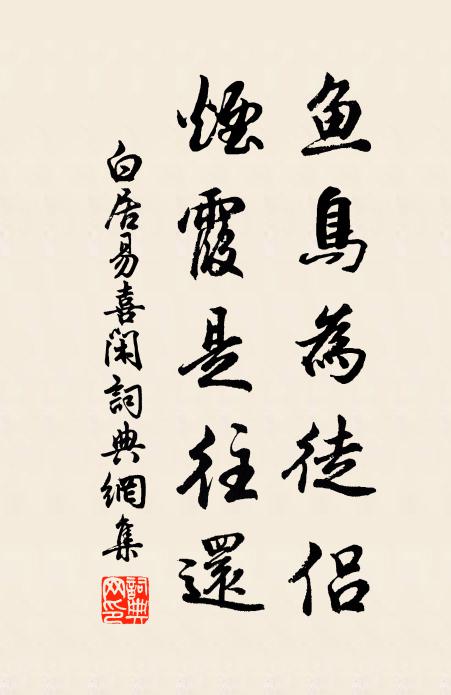 鱼鳥為徒侣
煙霞是往還
白居易喜閑詞典網集
詞典网印